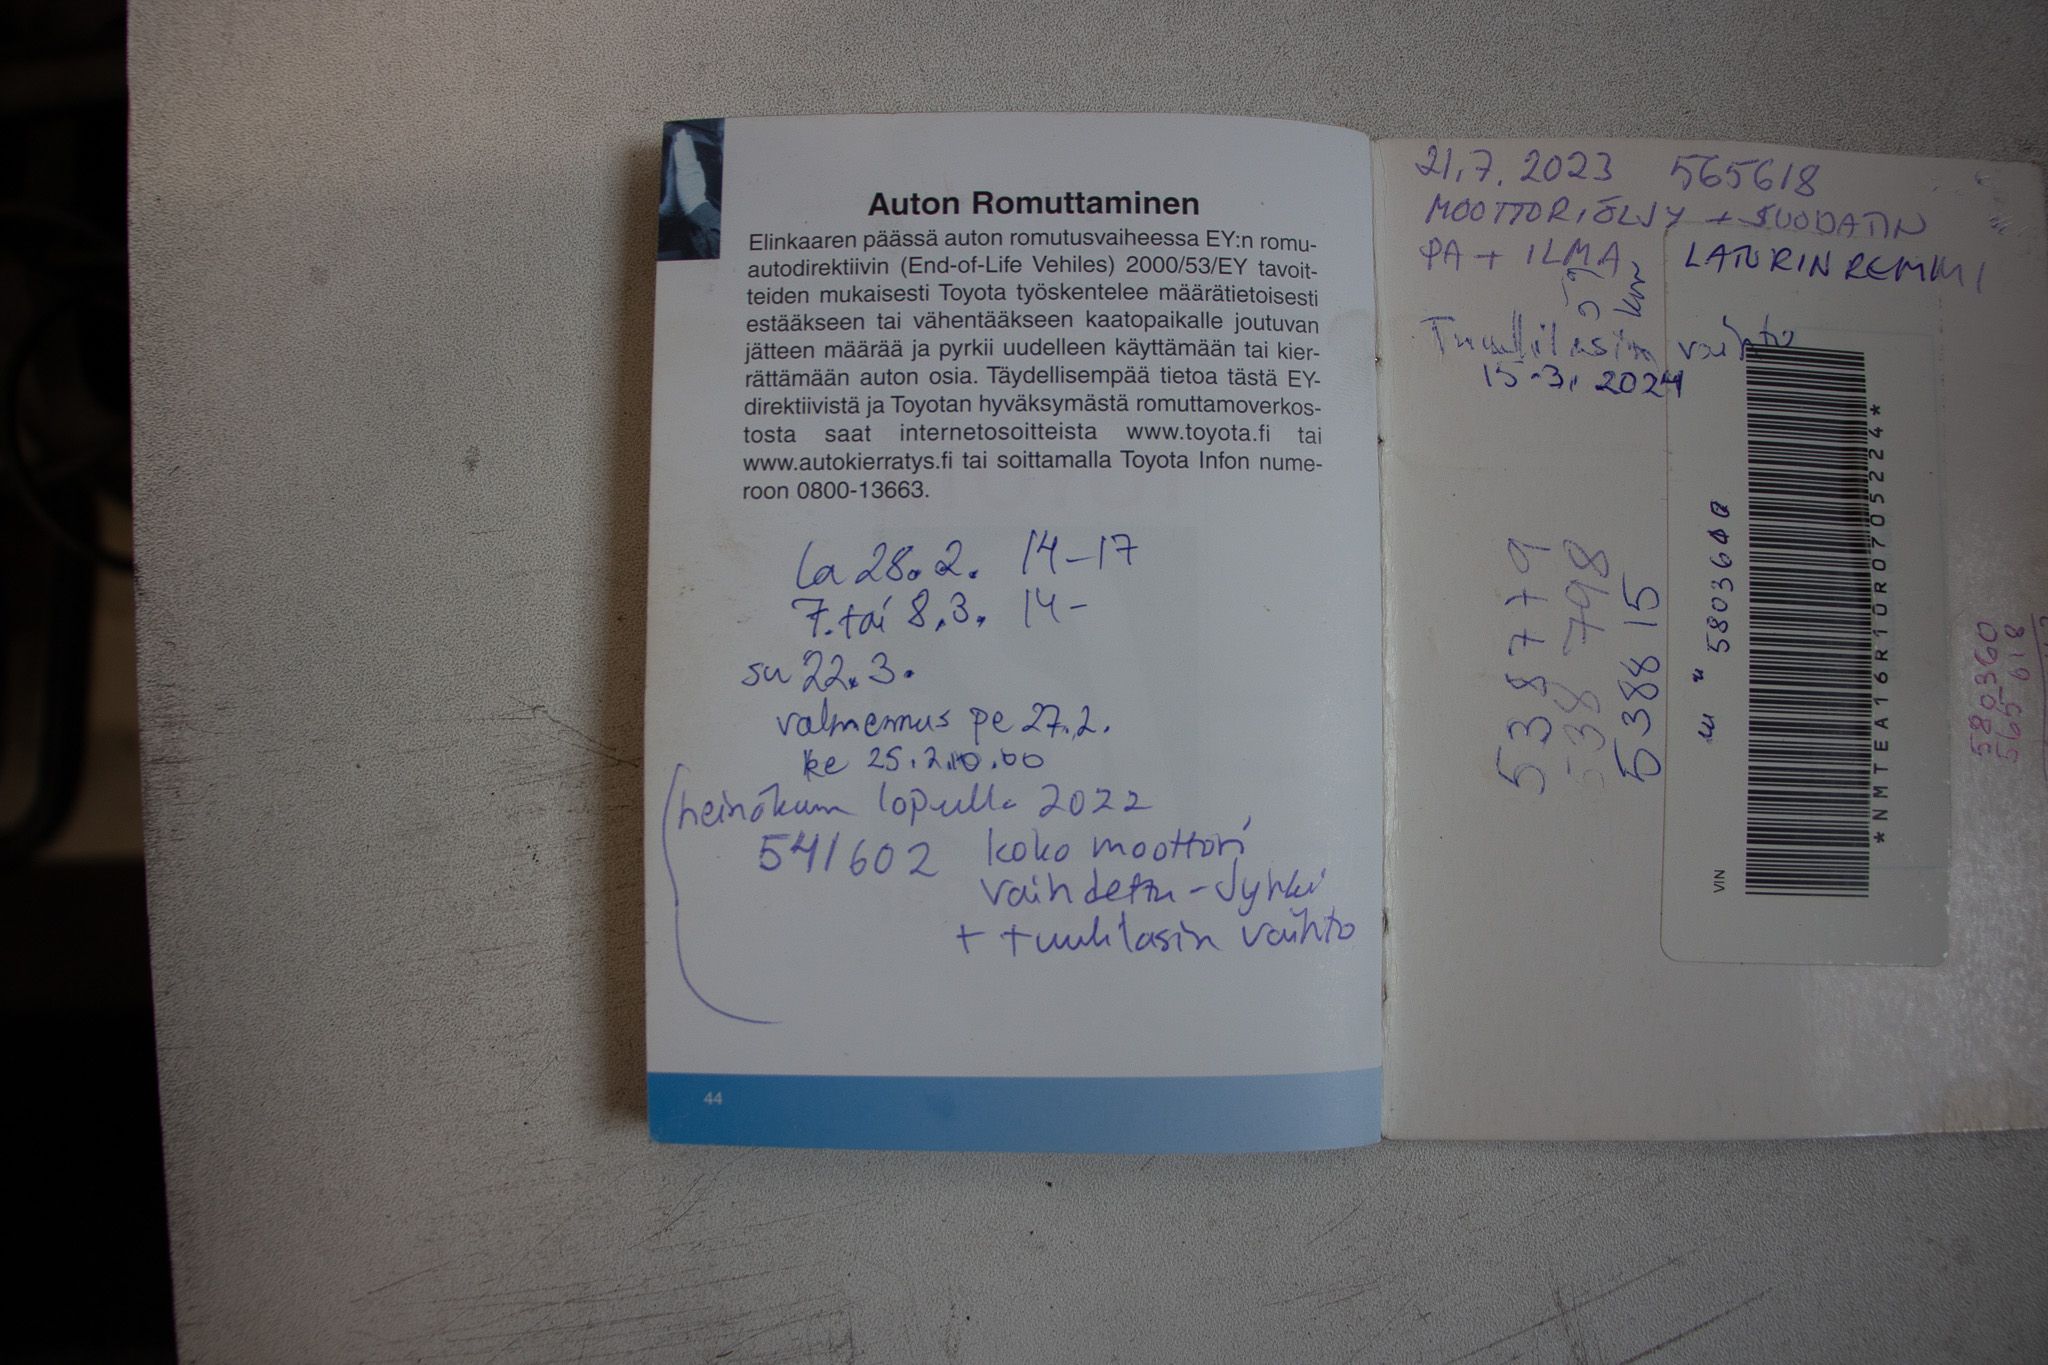 Auton Romuttaminen
Elinkaaren päässä auton romutusvaiheessa EY:n romu-
autodirektiivin (End-of-Life Vehiles) 2000/53/EY tavoit-
teiden mukaisesti Toyota työskentelee määrätietoisesti
estääkseen tai vähentääkseen kaatopaikalle joutuvan
jätteen määrää ja pyrkii uudelleen käyttämään tai kier-
rättämään auton osia. Täydellisempää tietoa tästä EY-
direktiivistä ja Toyotan hyväksymästä romuttamoverkos-
tosta saat internetosoitteista www.toyota.fi tai
www.autokierratys.fi tai soittamalla Toyota Infon nume-
roon 0800-13663.
la 28.2. 14-17
7. tai 8.3. 14-
su 22.3.
valmennus pe 27.2.
ke 25.2. 10.00
heinäkuun lopulla 2022
541602 koko moottori
vaihdettu - Jyrki
+ tuulilasin vaihto
44
21.7.2023 565618
MOOTTORIÖLJY + SUODATIN
PA + ILMA LATURIN REMMI
Tuulilasin vaihto
15.3.2024
538779
538798
538815
VIN
*NMTEA16R10R0705224*
580360
565618